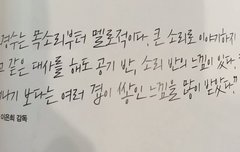 경수는 목소리부터 멜로적이다. 큰 소리로 이야기하지
같은 대사를 해도 공기 반, 소리 반의 느낌이 있다.
보다는 여러 겹이 쌓인 느낌을 많이 받았다."
이은희 감독